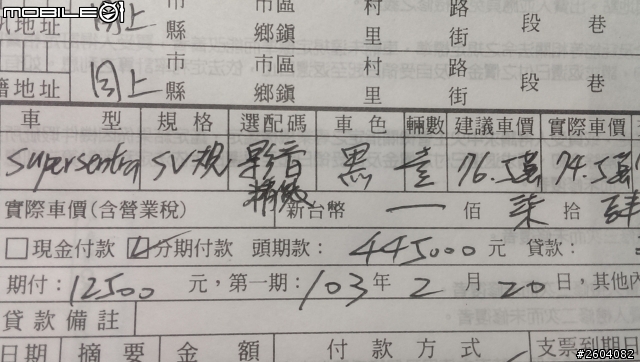 mobile01
訊地址 同上 市縣 市區鄉鎮 村里 路街 段 巷
籍地址 同上 市縣 市區鄉鎮 村里 路街 段 巷
車型 規格 選配碼 車色 輛數 建議車價 實際車價
Supersentra SV規 影音 黑 壹 76.5萬 74.5萬
實際車價(含營業稅) 新台幣 一 佰 柒 拾 肆
□現金付款 ☑分期付款 頭期款: 445000 元 貸款:
期付: 12500 元,第一期: 103 年 2 月 20 日,其他
貸款備註
日期 摘要 金額 付款方式 支票到期日
#2604082